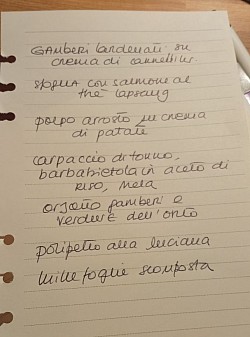 GAMBERI lardellati su
crema di cannellini
SFOGLIA con salmone al
thè lapsang
polpo arrosto su crema
di patate
carpaccio di tonno,
barbabietola in aceto di
riso, mela
gamberi e
verdure dell'orto
polipetto alla luciana
millefoglie scomposta